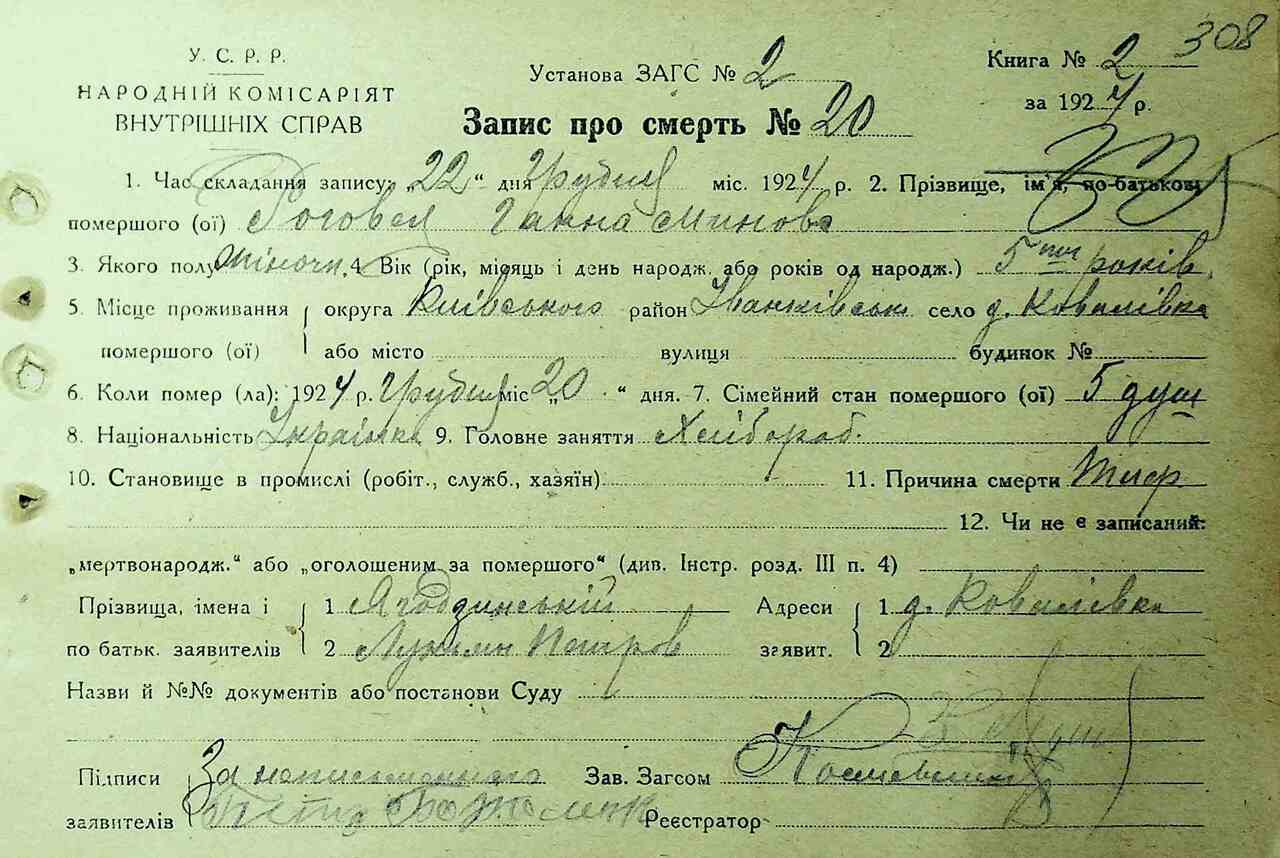 308
У. С. Р. Р.
НАРОДНІЙ КОМІСАРІЯТ
ВНУТРІШНІХ СПРАВ
Установа ЗАГС № 2
Книга № 2
за 1924 р.
Запис про смерть № 20
1. Час складання запису: „22“ дня Грудня міс. 1924 р. 2. Прізвище, ім'я, по-батькові
помершого (ої) Роговея Ганна Минова
3. Якого полу жіночи. 4 Вік (рік, місяць і день народж. або років од народж.) 5 ти років
5. Місце проживання округа Київського район Іванківськ село д. Ковалівка
помершого (ої) або місто вулиця будинок №
6. Коли помер (ла): 1924 р. Грудня міс „20“ дня. 7. Сімейний стан помершого (ої) 5 душ
8. Національність Українка 9. Головне заняття Хлібороб.
10. Становище в промислі (робіт., служб., хазяїн) 11. Причина смерти Тиф
12. Чи не є записаний:
„мертвонародж.“ або „оголошеним за помершого“ (див. Інстр. розд. III п. 4)
Прізвища, імена і 1 Ягодзинський Адреси 1 д. Ковалівка
по батьк. заявителів 2 Лукьян Петров заявит. 2
Назви й №№ документів або постанови Суду
Підписи За неписьменного Зав. Загсом
заявителів Реєстратор